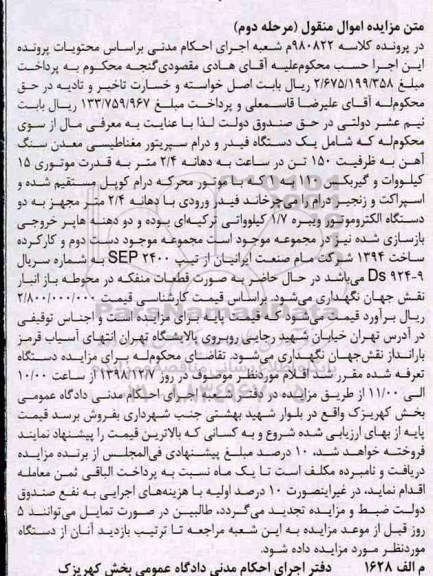 متن مزایده اموال منقول (مرحله دوم)
در پرونده کلاسه ۹۸۰۸۲۲م شعبه اجرای احکام مدنی براساس محتویات پرونده
این اجرا حسب محکوم‌علیه آقای هادی مقصودی‌گنجه محکوم به پرداخت
مبلغ ۲/۶۷۵/۱۹۹/۳۵۸ ریال بابت اصل خواسته و خسارت تاخیر و تادیه در حق
محکوم‌له آقای علیرضا قاسمعلی و پرداخت مبلغ ۱۳۳/۷۵۹/۹۶۷ ریال بابت
نیم عشر دولتی در حق صندوق دولت لذا با عنایت به معرفی مال از سوی
محکوم‌له که شامل یک دستگاه فیدر و درام سپریتور مغناطیسی معدن سنگ
آهن به ظرفیت ۱۵۰ تن در ساعت به دهانه ۲/۴ متر به قدرت موتوری ۱۵
کیلووات و گیربکس ۱۱۰ به ۱ که با موتور محرکه درام کوپل مستقیم شده و
اسپراکت و زنجیر درام را می‌چرخاند فیدر ورودی با دهانه ۲/۴ متر مجهز به دو
دستگاه الکتروموتور ویبره ۱/۷ کیلوواتی ترکیه‌ای بوده و دو دهنه هاپر خروجی
بازسازی شده نیز در مجموعه موجود است مجموعه موجود دست دوم و کارکرده
ساخت ۱۳۹۴ شرکت مام صنعت ایرانیان از تیپ SEP ۲۴۰۰ به شماره سریال
Ds ۹۲۴-۹ می‌باشد در حال حاضر به صورت قطعات منفکه در محوطه باز انبار
نقش جهان نگهداری می‌شود. براساس قیمت کارشناسی قیمت ۲/۸۰۰/۰۰۰/۰۰۰
ریال برآورد قیمت می‌شود که قیمت پایه برای مزایده است و اجناس توقیفی
در آدرس تهران خیابان شهید رجایی روبروی پالایشگاه تهران انتهای آسیاب قرمز
بارانداز نقش‌جهان نگهداری می‌شود. تقاضای محکوم‌له برای مزایده دستگاه
تعرفه شده مقرر شد اقلام موردنظر موصوف در روز ۱۳۹۸/۱۲/۷ از ساعت ۱۰/۰۰
الی ۱۱/۰۰ از طریق مزایده در دفتر شعبه اجرای احکام مدنی دادگاه عمومی
بخش کهریزک واقع در بلوار شهید بهشتی جنب شهرداری بفروش برسد قیمت
پایه از بهای ارزیابی شده شروع و به کسانی که بالاترین قیمت را پیشنهاد نمایند
فروخته خواهد شد، ۱۰ درصد مبلغ پیشنهادی فی‌المجلس از برنده مزایده
دریافت و نامبرده مکلف است تا یک ماه نسبت به پرداخت الباقی ثمن معامله
اقدام نماید، در غیراینصورت ۱۰ درصد اولیه با هزینه‌های اجرایی به نفع صندوق
دولت ضبط و مزایده تجدید می‌گردد، طالبین در صورت تمایل می‌توانند ۵
روز قبل از موعد مزایده به این شعبه مراجعه تا ترتیب بازدید آنان از دستگاه
موردنظر مورد مزایده داده شود.
م الف ۱۶۲۸ دفتر اجرای احکام مدنی دادگاه عمومی بخش کهریزک